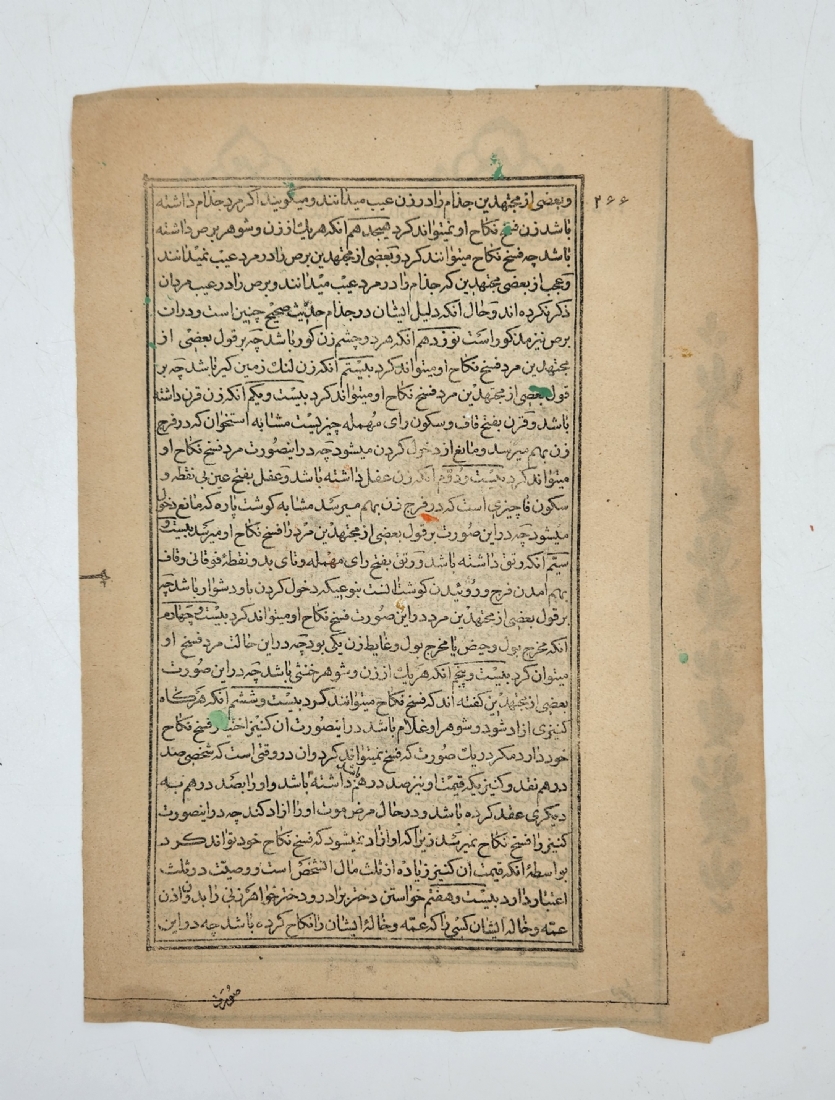 ۲۶۶
و بعضی از مجتهدین جذام را در زن عیب میدانند و میگویند اکر مرد جذام داشته
باشد زن فسخ نکاح او نمیتواند کرد هیجدهم انکه هریک از زن و شوهر برص داشته
باشد چه فسخ نکاح میتوانند کرد و بعضی از مجتهدین برص را در مرد عیب نمیدانند
و عجب از بعضی مجتهدین که جذام را در مرد عیب میدانند و برص را در عیب مردان
ذکر نکرده اند و حال انکه دلیل ایشان در جذام حدیث صحیح چنین است و دران
برص نیز مذکور است نوزدهم انکه هر دو چشم زن کور باشد چه بر قول بعضی از
مجتهدین مرد فسخ نکاح او میتواند کرد بیستم انکه زن لنک زمین کیر باشد چه بر
قول بعضی از مجتهدین مرد فسخ نکاح او میتواند کرد بیست و یکم انکه زن قرن داشته
باشد و قرن بفتح قاف و سکون رای مهمله چیزیست مشابه استخوان که در فرج
زن بهم میرسد و مانع از دخول کردن میشود چه در اینصورت مرد فسخ نکاح او
میتواند کرد بیست و دوم انکه زن عفل داشته باشد و عفل بفتح عین بی نقطه و
سکون فا چیزی است که در فرج زن بهم میرسد مشابه کوشت پاره که مانع دخول
میشود چه در این صورت بر قول بعضی از مجتهدین مرد را فسخ نکاح او میرسد بیست و
سیّم انکه رتق داشته باشد و رتق بفتح رای مهمله و تای بدو نقطهٔ فوقانی و قاف
بهم امدن فرج و روئیدن کوشت انست بنوعیکه دخول کردن باو دشوار باشد چه
بر قول بعضی از مجتهدین مرد در این صورت فسخ نکاح او میتواند کرد بیست و چهارم
انکه مخرج بول و حیض یا مخرج بول و غایط زن یکی بود چه در این حالت مرد فسخ او
میتوان کرد بیست و پنجم انکه هریک از زن و شوهر خنثی باشد چه در این صورت
بعضی از مجتهدین کفته اند که فسخ نکاح میتوانند کرد بیست و ششم انکه هرکاه
کنیزی ازاد شود و شوهر او غلام باشد در اینصورت ان کنیز اختیار فسخ نکاح
خود دارد مکر در یک صورت که فسخ نمیتواند کرد و ان در وقتی است که شخصی صد
درهم نقد و کنیزیکه قیمت او نیز صد درهم باشد داشته باشد و او را بصد درهم به
دیکری عقد کرده باشد و در حال مرض موت او را ازاد کند چه در اینصورت
کنیز را فسخ نکاح نمیرسد زیرا که او ازاد نمیشود که فسخ نکاح خود تواند کرد
بواسطهٔ انکه قیمت ان کنیز زیاده از ثلث مال الشخص است و وصیت در ثلث
اعتبار دارد بیست و هفتم خواستن دختر برادر و دختر خواهر زنی را بدون اذن
عمه و خاله ایشان کسی را که عمه و خالهٔ ایشان را نکاح کرده باشد چه در این
صورت